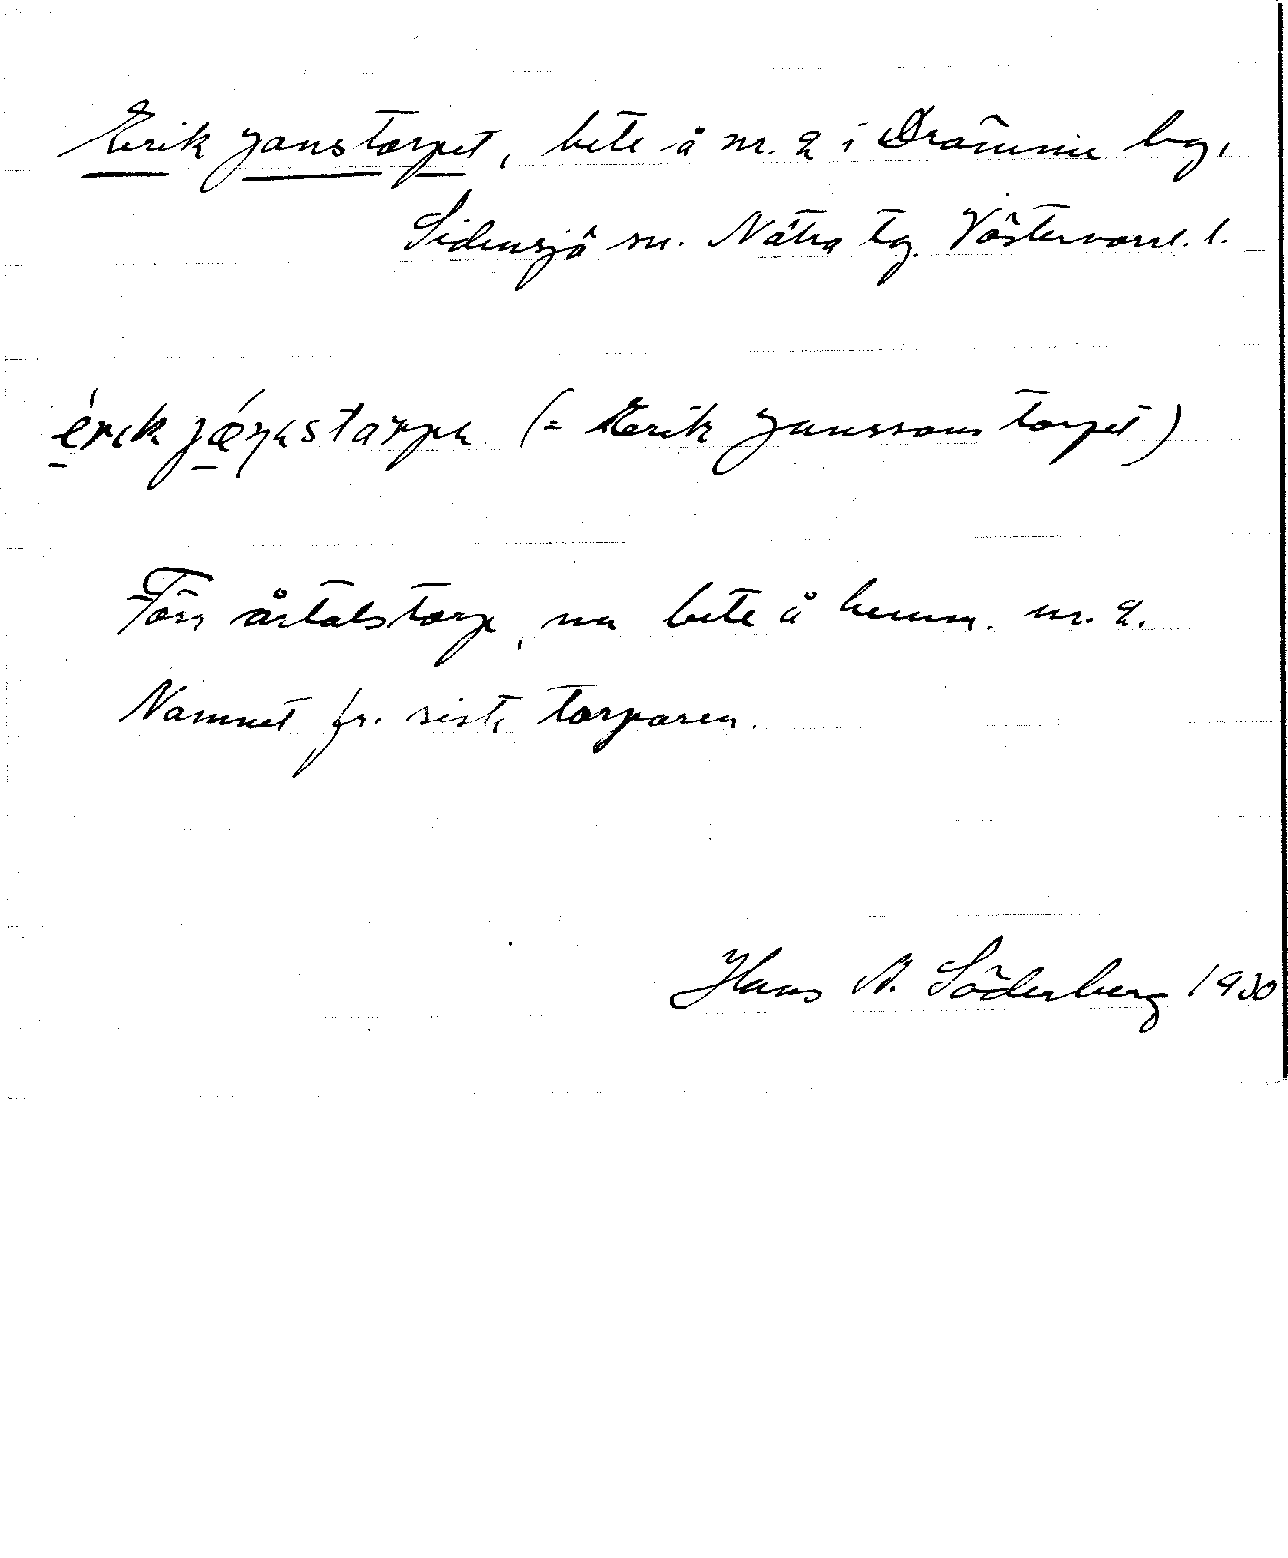 Erik Janstorpet, bete å nr. 2 i Drömme by,
Sidensjö sn. Nätra tg. Västernorrl. l.
érik
(= Erik Janssons torpet)
Förr årtalstorp, nu bete å hemm. nr. 2.
Namnet fr. siste torparen.
Hans N. Söderberg 1930